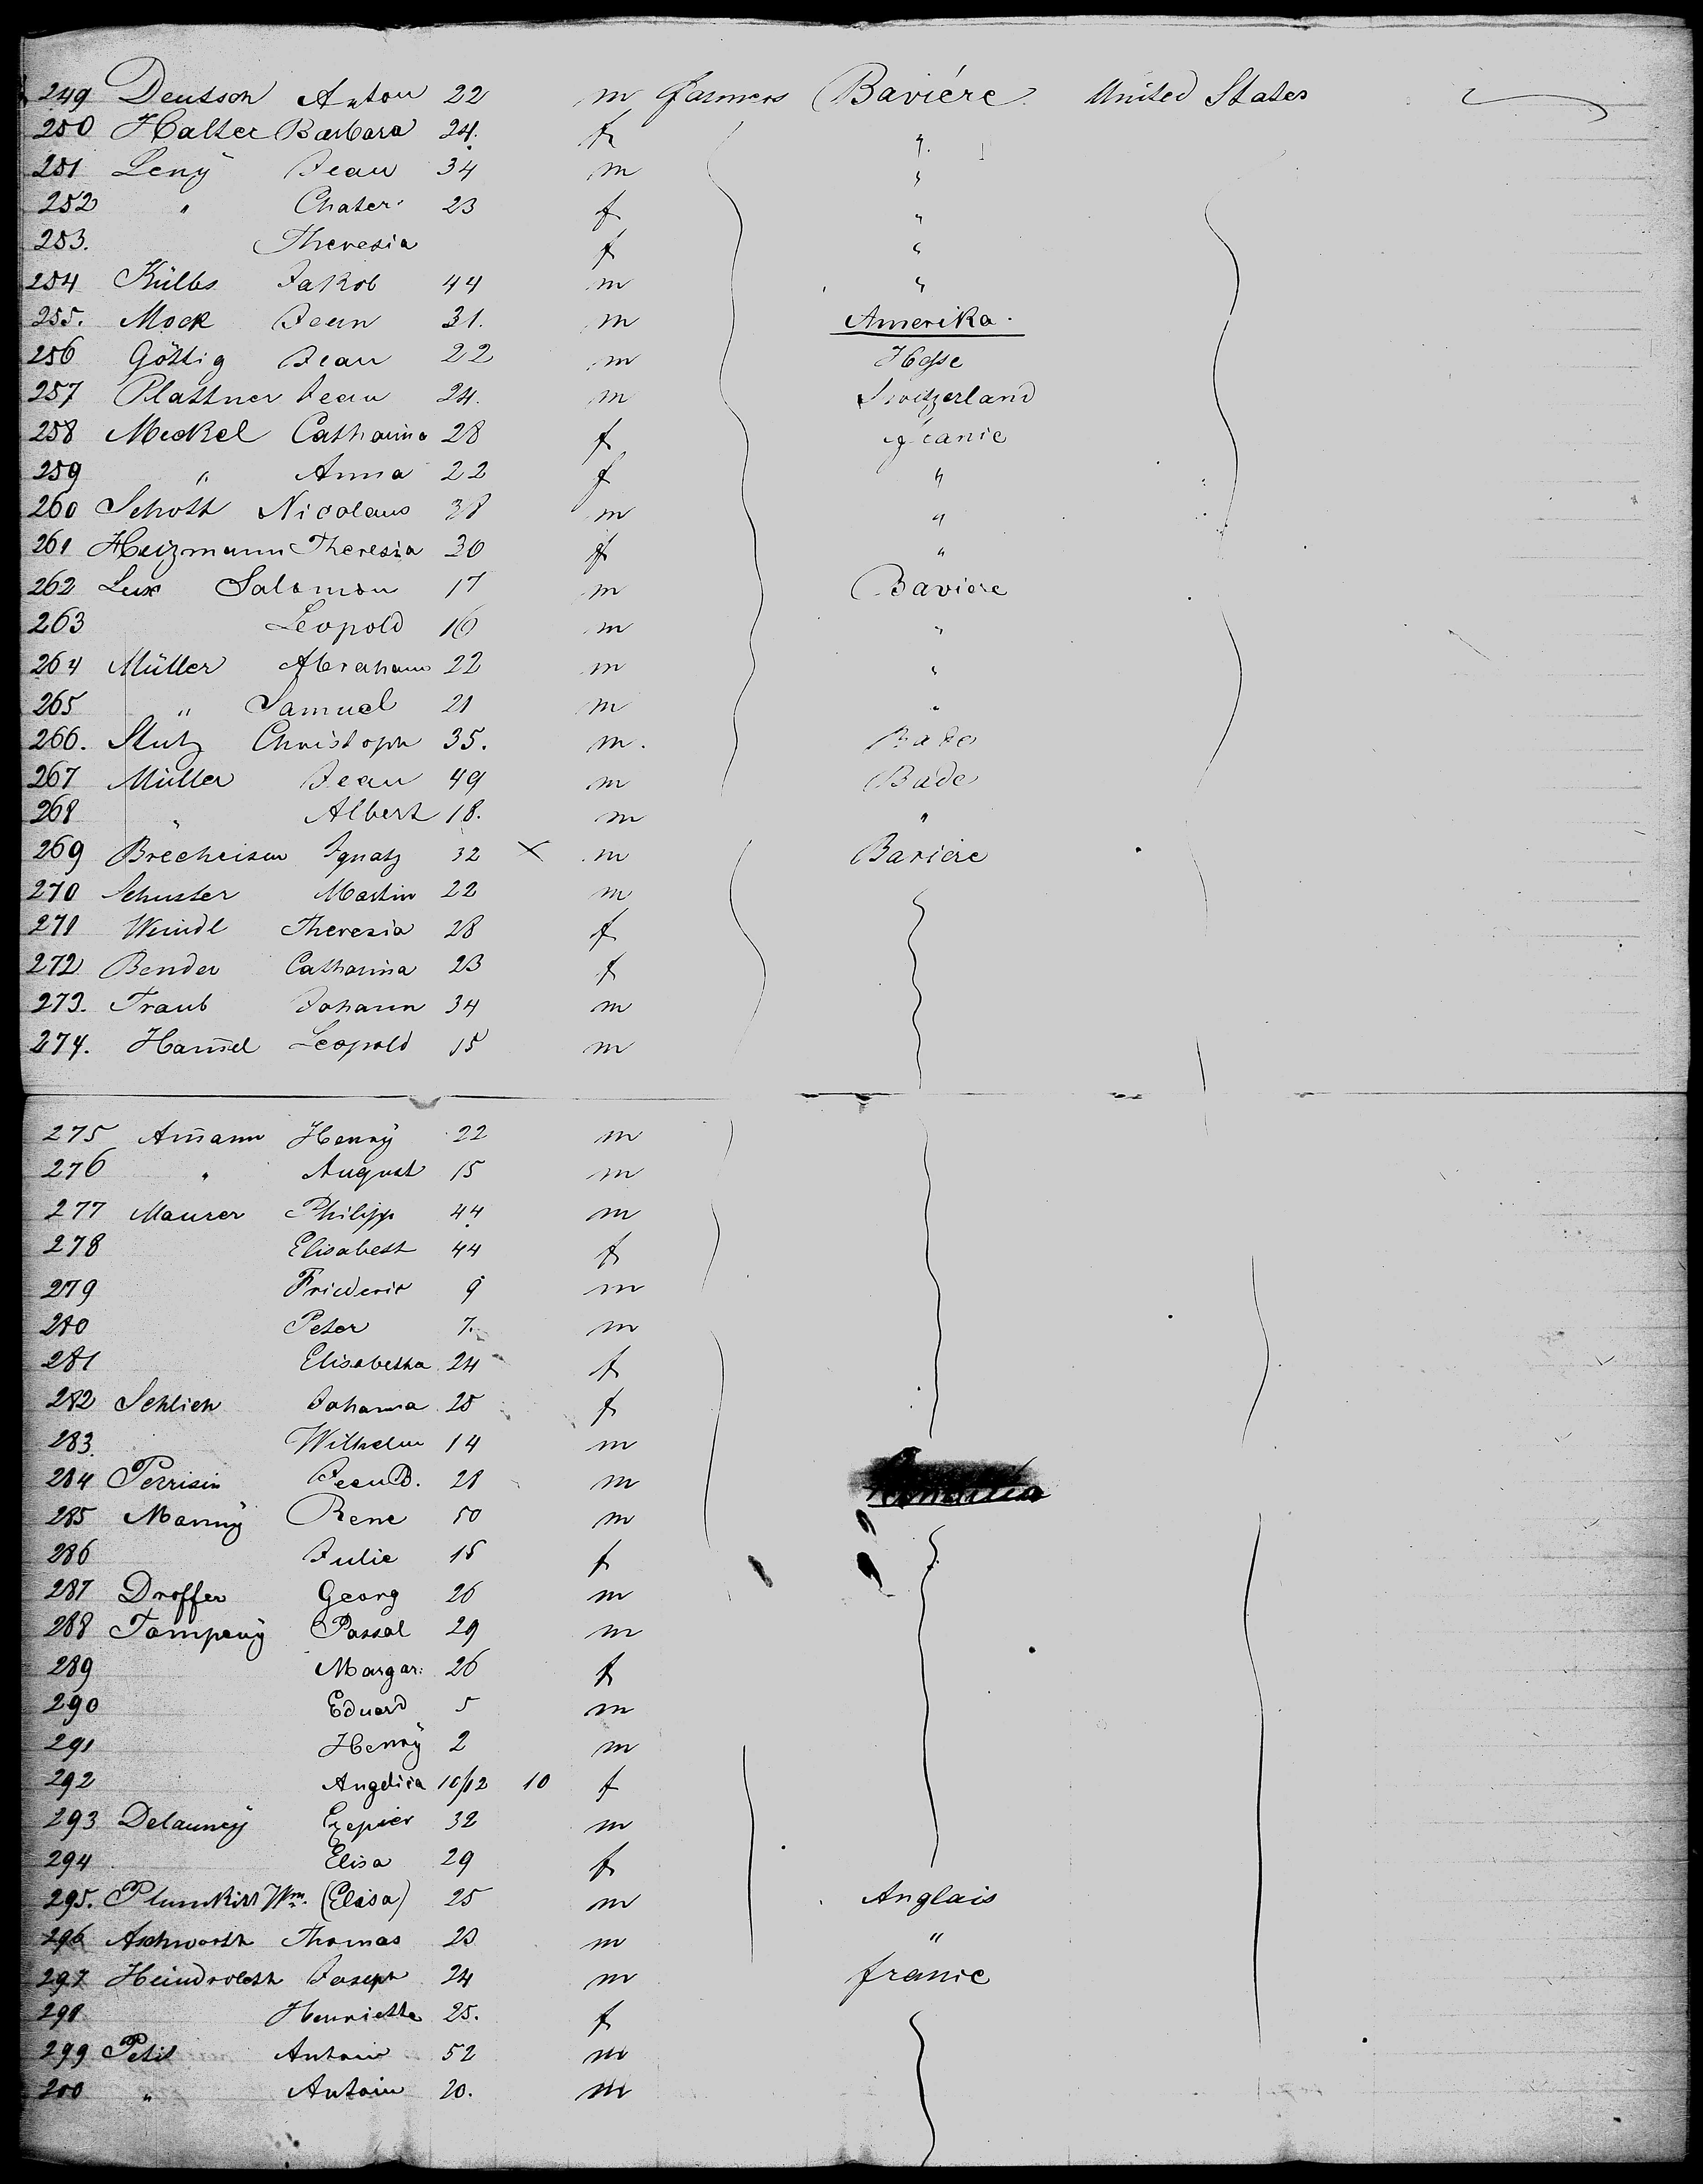 249 Deutsch Anton 22 m farmers Baviére United States
250 Halter Barbara 24. f "
251 Leny Jean 34 m "
252 " Chater. 23 f "
253. Theresia f "
254 Külbs Jakob 44 m "
255. Mock Jean 31. m Amerika.
256 Göttig Jean 22 m Hesse
257 Plattner Jean 24. m Switzerland
258 Meckel Catharina 28 f france
259 " Anna 22 f "
260 Schott Nicolaus 38 m "
261 Heizmann Theresia 30 f "
262 Lux Salomon 17 m Baviere
263 Leopold 16 m "
264 Müller Abraham 22 m "
265 " Samuel 21 m "
266. Stutz Christoph 35. m. Bade
267 Müller Jean 49 m Bade
268 " Albert 18. m "
269 Brecheisen Ignatz 32 x m Baviere
270 Schuster Martin 22 m
271 Weindl Theresia 28 f
272 Bender Catharina 23 f
273. Traub Johann 34 m
274. Ham̅el Leopold 15 m
275 Am̅ann Henry 22 m
276 " August 15 m
277 Maurer Philipp 44 m
278 Elisabeth 44 f
279 Friederic 9 m
280 Peter 7. m
281 Elisabetha 24 f
282 Schlich Johanna 25 f
283. Wilhelm 14 m
284 Perrisin Jean B. 28 m
285 Manny Rene 50 m
286 Julie 15 f
287 Droffer Georg 26 m
288 Tampeny Passal 29 m
289 Margar: 26 f
290 Eduard 5 m
291 Henry 2 m
292 Angelica 10/12 10 f
293 Delauney 32 m
294 Elisa 29 f
295. Wm. (Elisa) 25 m Anglais
296 Aschworth Thomas 23 m "
297 Joseph 24 m france
298 Henriette 25. f
299 Petit Antoin 52 m
200 " Antoin 20. m